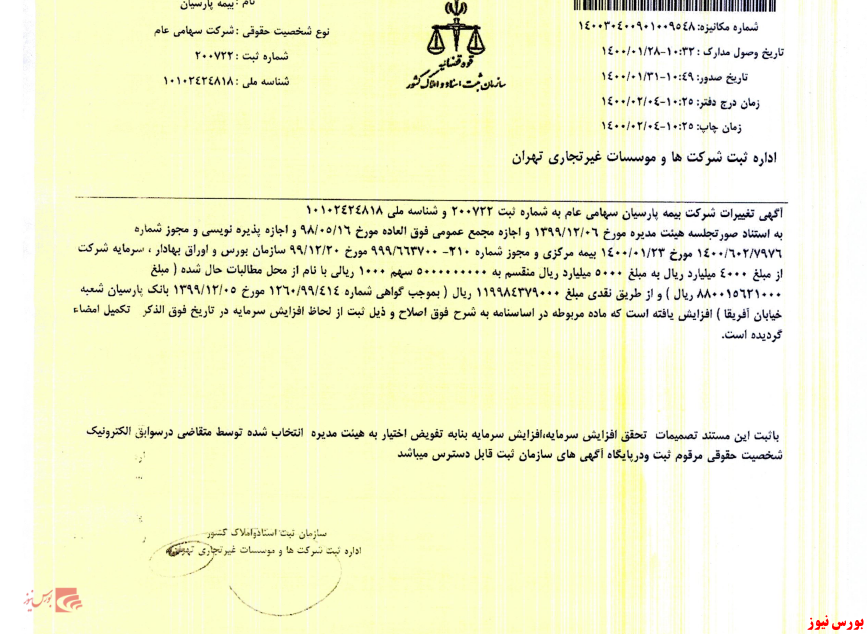 شماره مکانیزه: ۱۴۰۰۳۰۴۰۰۹۰۱۰۰۹۵۴۸
تاریخ وصول مدارک : ۱۰:۳۲-۱۴۰۰/۰۱/۲۸
تاریخ صدور: ۱۰:۴۹-۱۴۰۰/۰۱/۳۱
زمان درج دفتر: ۱۰:۲۵-۱۴۰۰/۰۲/۰۴
زمان چاپ: ۱۰:۲۵-۱۴۰۰/۰۲/۰۴
قوه قضائیه
سازمان ثبت اسناد و املاک کشور
نام : بیمه پارسیان
نوع شخصیت حقوقی : شرکت سهامی عام
شماره ثبت : ۲۰۰۷۲۲
شناسه ملی : ۱۰۱۰۲۴۲۴۸۱۸
اداره ثبت شرکت ها و موسسات غیرتجاری تهران
آگهی تغییرات شرکت بیمه پارسیان سهامی عام به شماره ثبت ۲۰۰۷۲۲ و شناسه ملی ۱۰۱۰۲۴۲۴۸۱۸
به استناد صورتجلسه هیئت مدیره مورخ ۱۳۹۹/۱۲/۰۶ و اجازه مجمع عمومی فوق العاده مورخ ۹۸/۰۵/۱۶ و اجازه پذیره نویسی و مجوز شماره
۱۴۰۰/۶۰۲/۷۹۷۶ مورخ ۱۴۰۰/۰۱/۲۳ بیمه مرکزی و مجوز شماره ۲۱۰- ۹۹۹/۶۶۳۷۰۰ مورخ ۹۹/۱۲/۲۰ سازمان بورس و اوراق بهادار ، سرمایه شرکت
از مبلغ ۴۰۰۰ میلیارد ریال به مبلغ ۵۰۰۰ میلیارد ریال منقسم به ۵۰۰۰۰۰۰۰۰۰ سهم ۱۰۰۰ ریالی با نام از محل مطالبات حال شده ( مبلغ
۸۸۰۰۱۵۶۲۱۰۰۰ ریال ) و از طریق نقدی مبلغ ۱۱۹۹۸۴۳۷۹۰۰۰ ریال ( بموجب گواهی شماره ۱۲۶۰/۹۹/۴۱۴ مورخ ۱۳۹۹/۱۲/۰۵ بانک پارسیان شعبه
خیابان آفریقا ) افزایش یافته است که ماده مربوطه در اساسنامه به شرح فوق اصلاح و ذیل ثبت از لحاظ افزایش سرمایه در تاریخ فوق الذکر تکمیل امضاء
گردیده است.
باثبت این مستند تصمیمات تحقق افزایش سرمایه،افزایش سرمایه بنابه تفویض اختیار به هیئت مدیره انتخاب شده توسط متقاضی درسوابق الکترونیک
شخصیت حقوقی مرقوم ثبت ودرپایگاه آگهی های سازمان ثبت قابل دسترس میباشد
سازمان ثبت اسنادواملاک کشور
اداره ثبت شرکت ها و موسسات غیرتجاری تهران
بورس نیوز
بورس نیوز